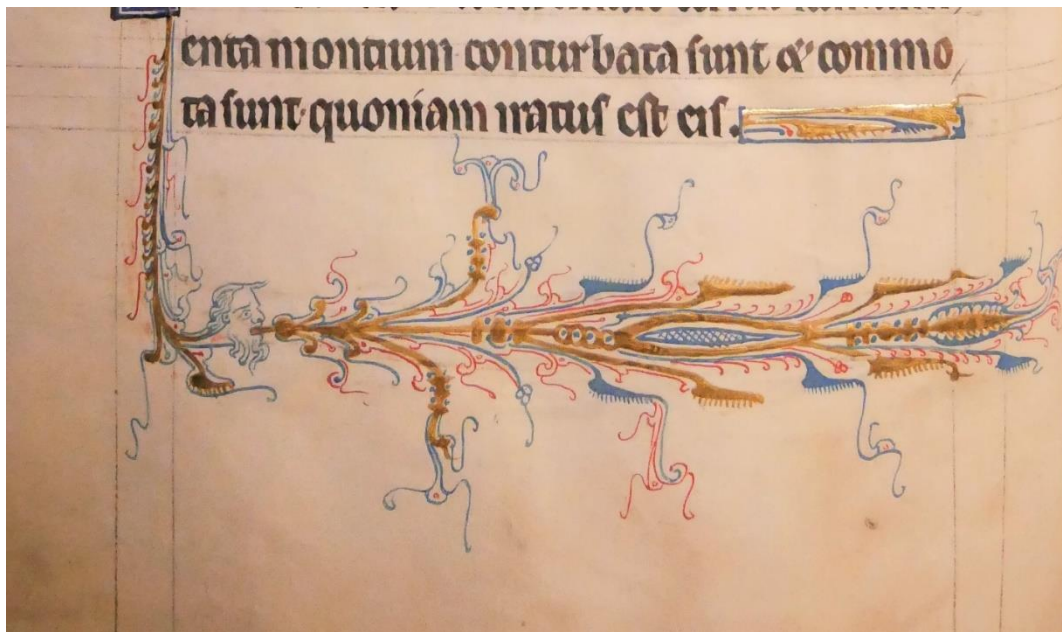 enta montium conturbata sunt & commo
ta sunt· quoniam iratus est eis.